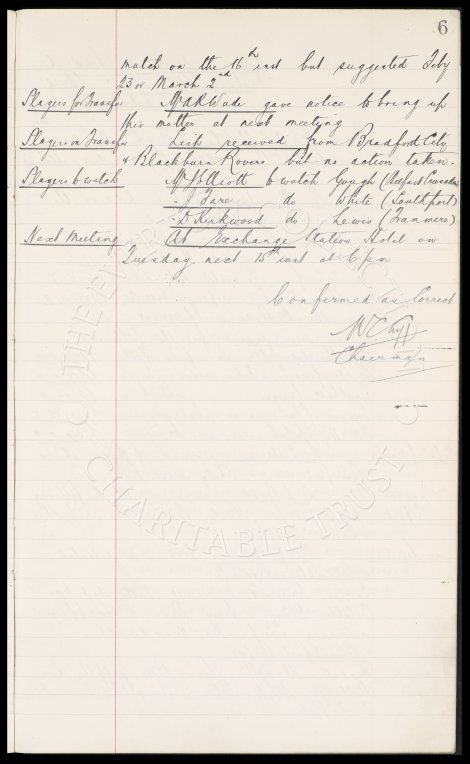 6
match on the 16th inst but suggested Feby
23 or March 2nd
Players for Transfer Mr A.R. Wade gave notice to bring up
this matter at next meeting
Players on Transfer Lists received from Bradford City
& Blackburn Rovers but no action taken.
Players to watch Mr J. Elliott to watch Gough (Belfast Crusaders)
" J. Fare do White (Southport)
" D. Kirkwood do Lewis (Tranmere)
Next Meeting At Exchange Station Hotel on
Tuesday next 15th inst at 6 pm
Confirmed as Correct
W C Cuff
Chairman
THE EVERTON
CHARITABLE TRUST